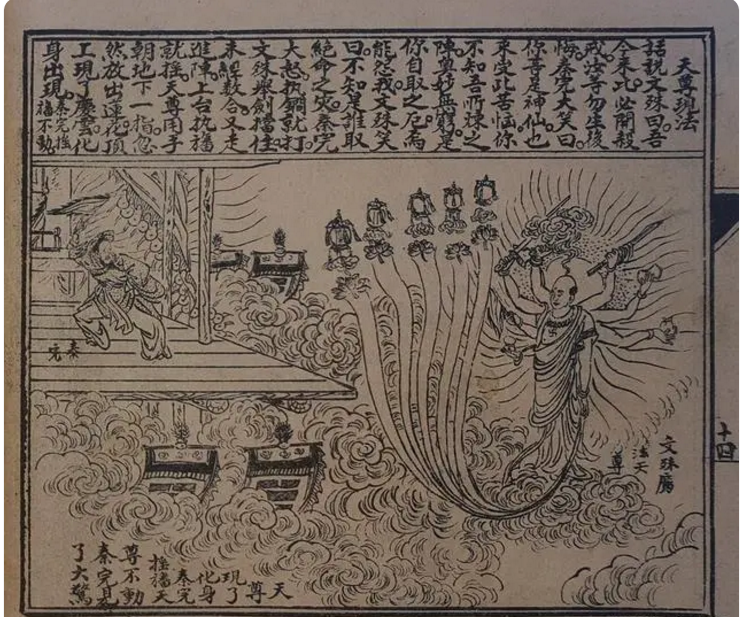 天尊現法
話說文殊曰吾
今來此必開殺
戒汝等勿生後
悔。秦完大笑曰。
你等是神仙也
來受此苦惱你
不知吾所煉之
陣奧妙無窮。是
你自取之厄焉
能怨我文殊笑
曰不知是誰取
絕命之災秦完
大怒執鐧就打
文殊舉劍擋住
未經數合又走
進陣上台執旛
就搖天尊用手
朝地下一指忽
然放出蓮花頂
上現了慶雲化
身出現。秦完搖
旛不動
文殊廣
法天
尊
秦
完
天
尊
現了
化身
秦完
搖旛天
尊不動
秦完見
了大驚
十四